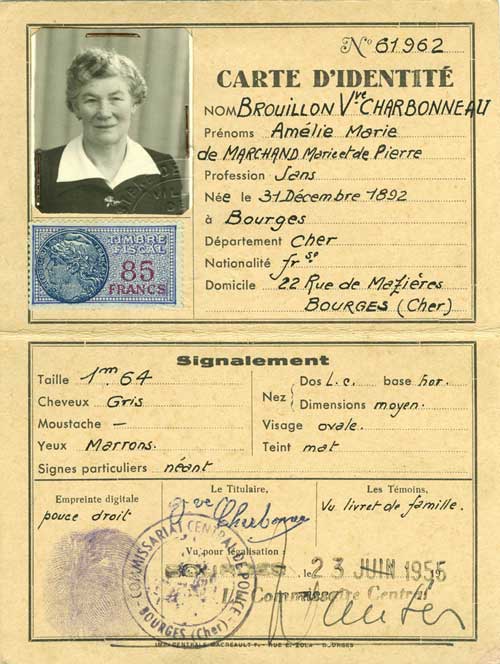 No 61962
CARTE D'IDENTITÉ
NOM BROUILLON Vve CHARBONNEAU
Prénoms Amélie Marie
de MARCHAND Marie et de Pierre
Profession Sans
Née le 31 Décembre 1892
à Bourges
Département Cher
Nationalité frse
Domicile 22 Rue de Mazières
BOURGES (Cher)
TIMBRE
FISCAL
85
FRANCS
Signalement
Taille 1m64
Cheveux Gris
Moustache –
Yeux Marrons.
Signes particuliers néant
Nez { Dos L.c. base hor.
Dimensions moyen.
Visage ovale.
Teint mat
Empreinte digitale
pouce droit
Le Titulaire,
Vve
Les Témoins,
Vu livret de famille.
Vu pour légalisation
BOURGES, le 23 JUIN 1955
Le Commissaire Central
COMMISSARIAT CENTRAL DE POLICE
BOURGES (Cher)
IMP. CENTRALE MACREAULT F. - RUE E. ZOLA - BOURGES